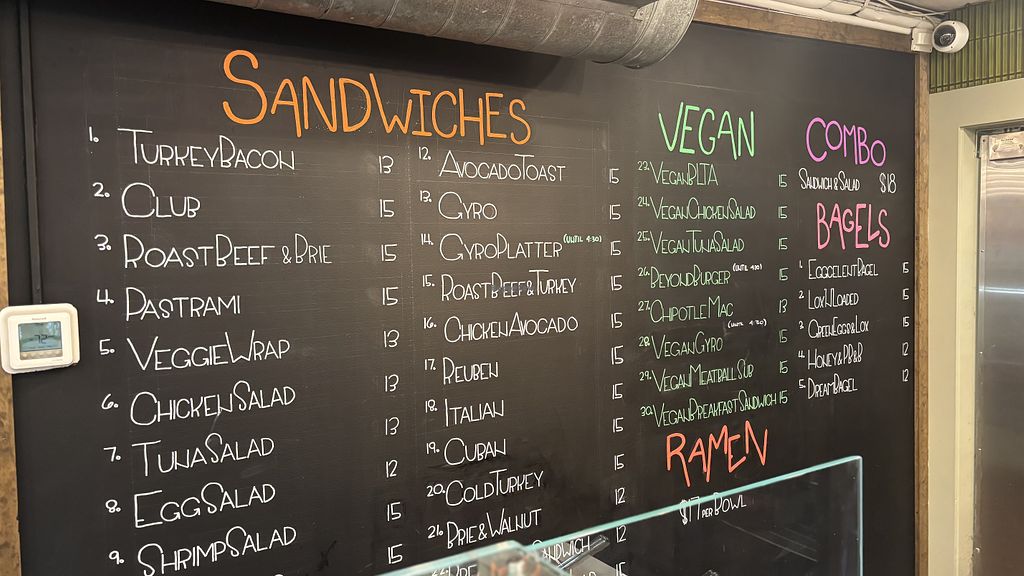 SANDWICHES
1. TURKEYBACON 13
2. CLUB 15
3. ROASTBEEF & BRIE 15
4. PASTRAMI 15
5. VEGGIEWRAP 13
6. CHICKENSALAD 13
7. TUNASALAD 13
8. EGGSALAD 12
9. SHRIMPSALAD 15
15
12. AVOCADOTOAST 15
13. GYRO 15
14. GYROPLATTER (UNTIL 4:30) 15
15. ROASTBEEF&TURKEY 15
16. CHICKENAVOCADO 15
17. REUBEN 15
18. ITALIAN 15
19. CUBAN 15
20. COLDTURKEY 15
21. BRIE&WALNUT 12
SANDWICH 12
VEGAN
23. VEGANBLTA 15
24. VEGANCHICKENSALAD 15
25. VEGANTUNASALAD 15
26. BEYONDBURGER 15
27. CHIPOTLEMAC 13
28. VEGANGYRO 15
29. VEGANMEATBALLSUB 15
30. VEGANBREAKFASTSANDWICH 15
RAMEN
$17 PER BOWL
COMBO
SANDWICH & SALAD $18
BAGELS
1. EGGCELENTBAGEL 15
2. LOX'NLOADED 15
3. GREENEGG&LOX 15
4. HONEY&PB&B 12
5. DREAMBAGEL 12